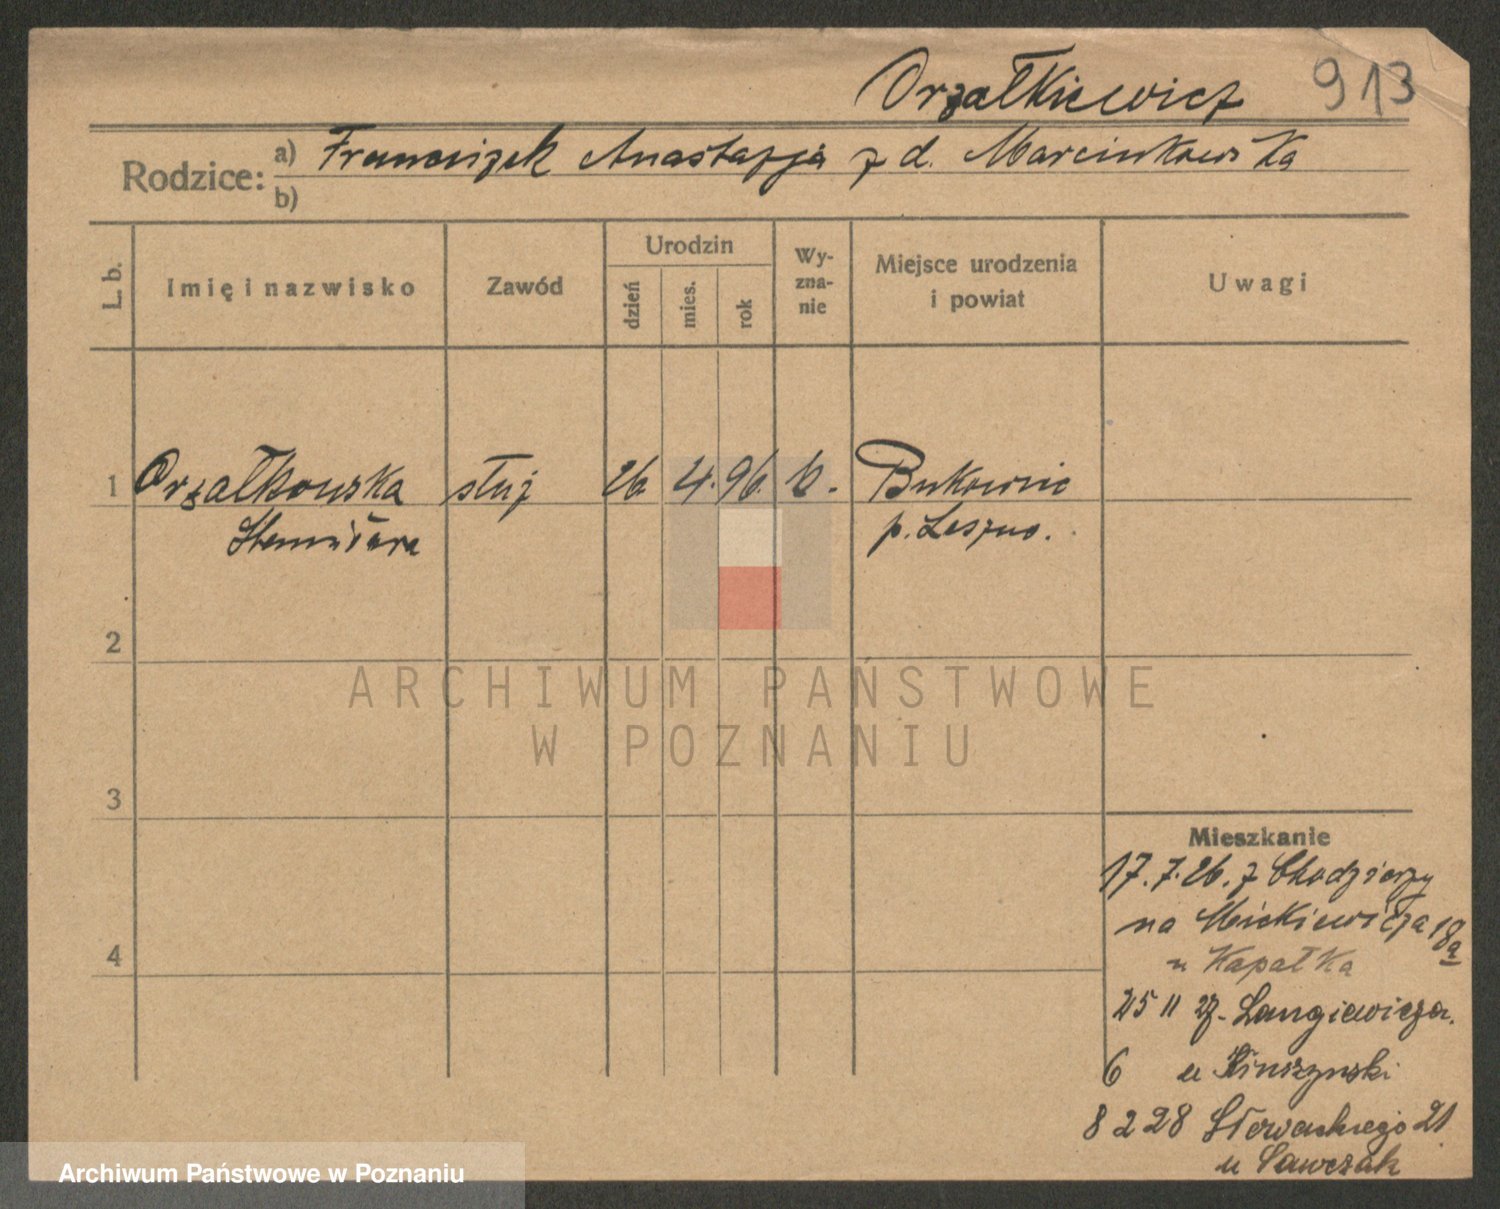 Orzałkiewicz 913
Rodzice: a) Franciszek Anastazja z d. Marcinkowska
b)
L. b. Imię i nazwisko Zawód Urodzin dzień mies. rok Wyznanie Miejsce urodzenia i powiat Uwagi
1 Orzałkowska służ 26 4. 96. k. Bukownic
p. Leszno.
2
3
4
Mieszkanie
17.7.26. z Chodzieży
na Mickiewicza 18a
u Kapałka
25 11 27. Langiewicza.
6 u
8 2 28 Słowackiego 21
u Sawczak
ARCHIWUM PAŃSTWOWE
W POZNANIU
Archiwum Państwowe w Poznaniu